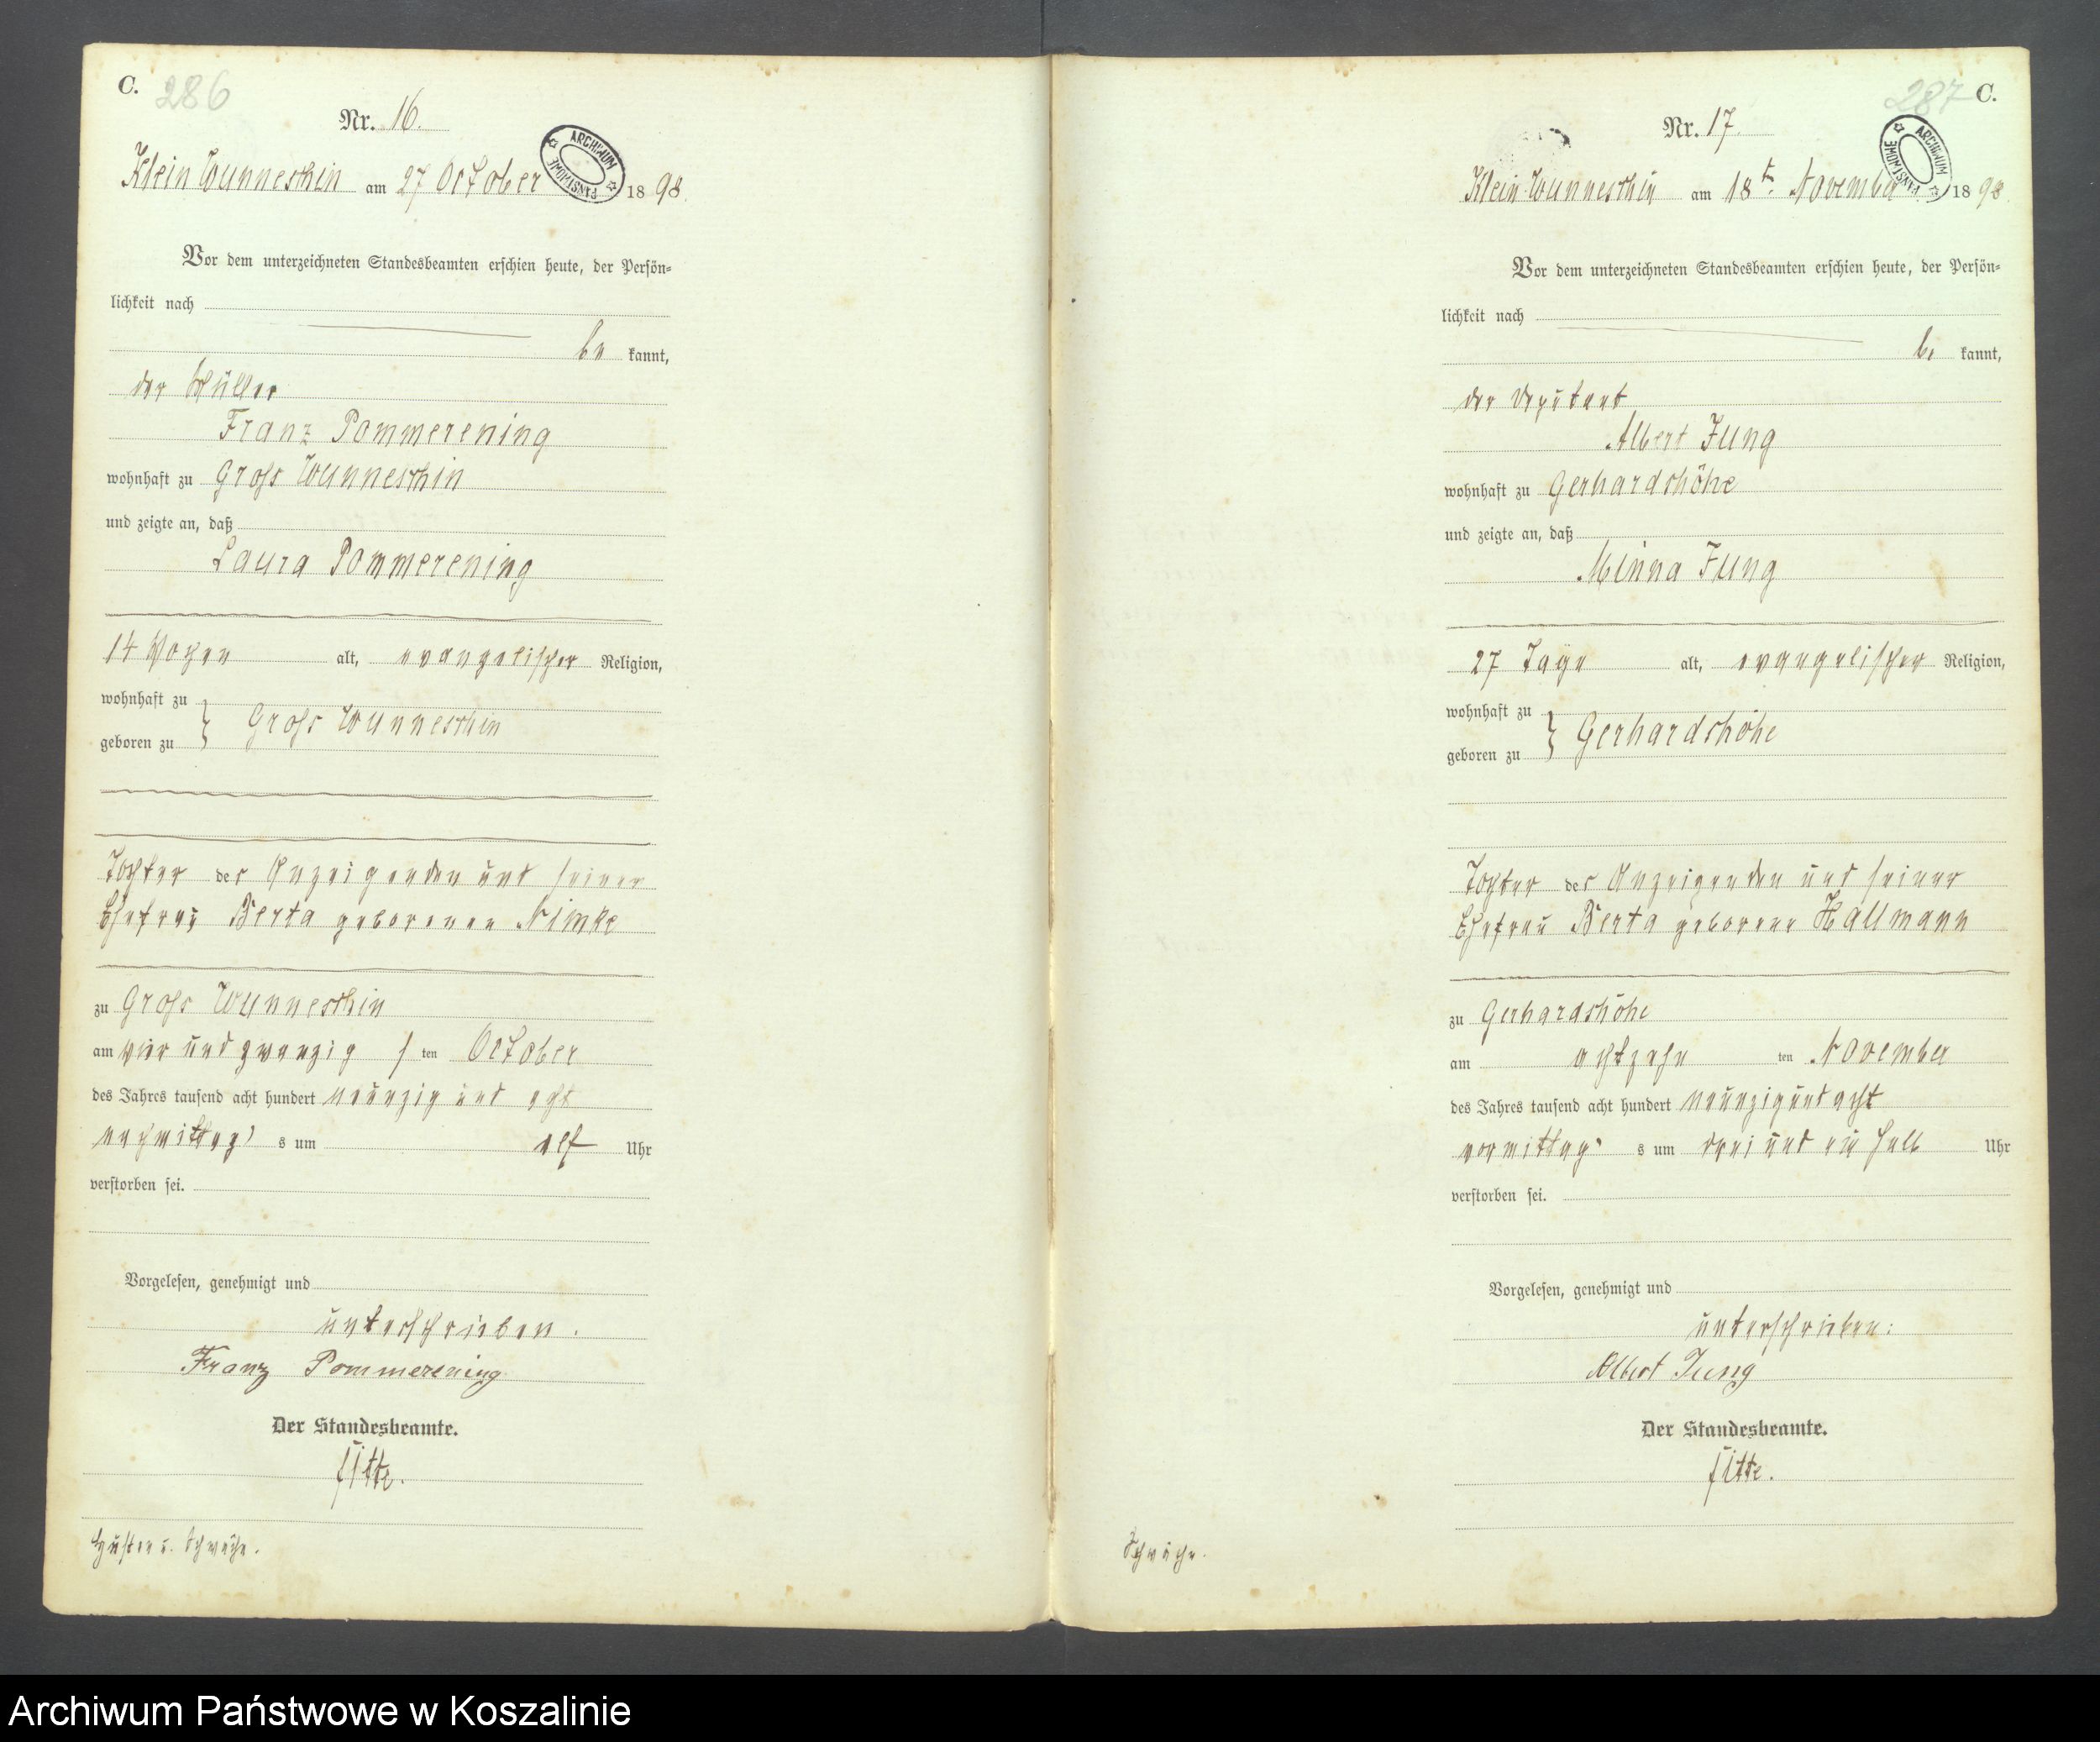 C. 286
Nr. 16.
ARCHIWUM PAŃSTWOWE
Klein Wunneschin am 27 October 1898.
Vor dem unterzeichneten Standesbeamten erschien heute, der Persön-
lichkeit nach
be kannt,
der Müller
Franz Pommerening
wohnhaft zu Gross Wunneschin
und zeigte an, daß
Laura Pommerening
14 Wochen alt, evangelischer Religion,
wohnhaft zu
} Gross Wunneschin
geboren zu
Tochter des Anzeigenden und seiner
Ehefrau Berta geborenen Nimke
zu Gross Wunneschin
am vier und zwanzig s ten October
des Jahres tausend acht hundert neunzig und acht
nachmittags um elf Uhr
verstorben sei.
Vorgelesen, genehmigt und
unterschrieben.
Franz Pommerening
Der Standesbeamte.
Husten u. Schwäche.
287 C.
Nr. 17.
ARCHIWUM PAŃSTWOWE
Klein Wunneschin am 18t. November 1898.
Vor dem unterzeichneten Standesbeamten erschien heute, der Persön-
lichkeit nach
be kannt,
der Deputant
Albert Jung
wohnhaft zu Gerhardshöhe
und zeigte an, daß
Minna Jung
27 Tage alt, evangelischer Religion,
wohnhaft zu
} Gerhardshöhe
geboren zu
Tochter des Anzeigenden und seiner
Ehefrau Berta geborene Hallmann
zu Gerhardshöhe
am achtzehn ten November
des Jahres tausend acht hundert neunzig und acht
vormittags um drei und ein halb Uhr
verstorben sei.
Vorgelesen, genehmigt und
unterschrieben:
Albert Jung
Der Standesbeamte.
Schwäche.
Archiwum Państwowe w Koszalinie